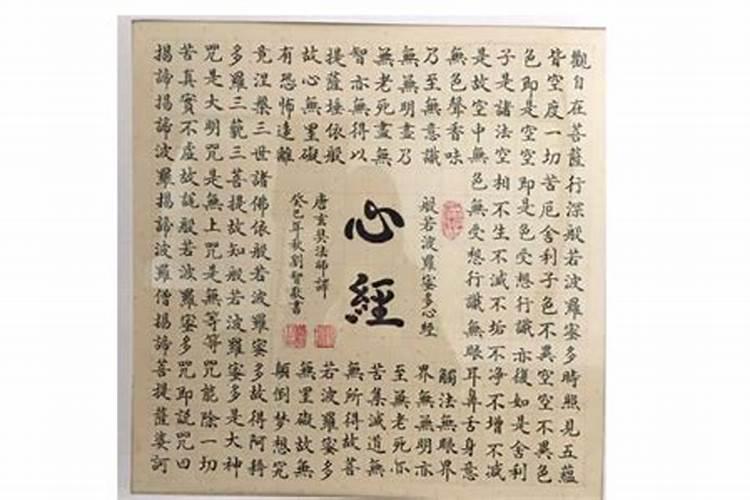 觀自在菩薩行深般若波羅蜜多時照見五蘊
皆空度一切苦厄舍利子色不異空空不異色
色即是空空即是色受想行識亦復如是舍利
子是諸法空相不生不滅不垢不淨不增不減
是故空中無色無受想行識無眼耳鼻舌身意
無色聲香味
觸法無眼界
乃至無意識
界無無明亦
無無明盡乃
至無老死亦
無老死盡無
苦集滅道無
智亦無得以
無所得故菩
提薩埵依般
若波羅蜜多
故心無罣礙
無罣礙故無
有恐怖遠離
顛倒梦想究
竟涅槃三世諸佛依般若波羅蜜多故得阿耨
多羅三藐三菩提故知般若波羅蜜多是大神
咒是大明咒是無上咒是無等等咒能除一切
苦真實不虛故說般若波羅蜜多咒即說咒曰
揭諦揭諦波羅揭諦波羅僧揭諦菩提薩婆訶
般若波羅蜜多心經
心經
唐玄奘法師譯
癸巳年秋劉智書